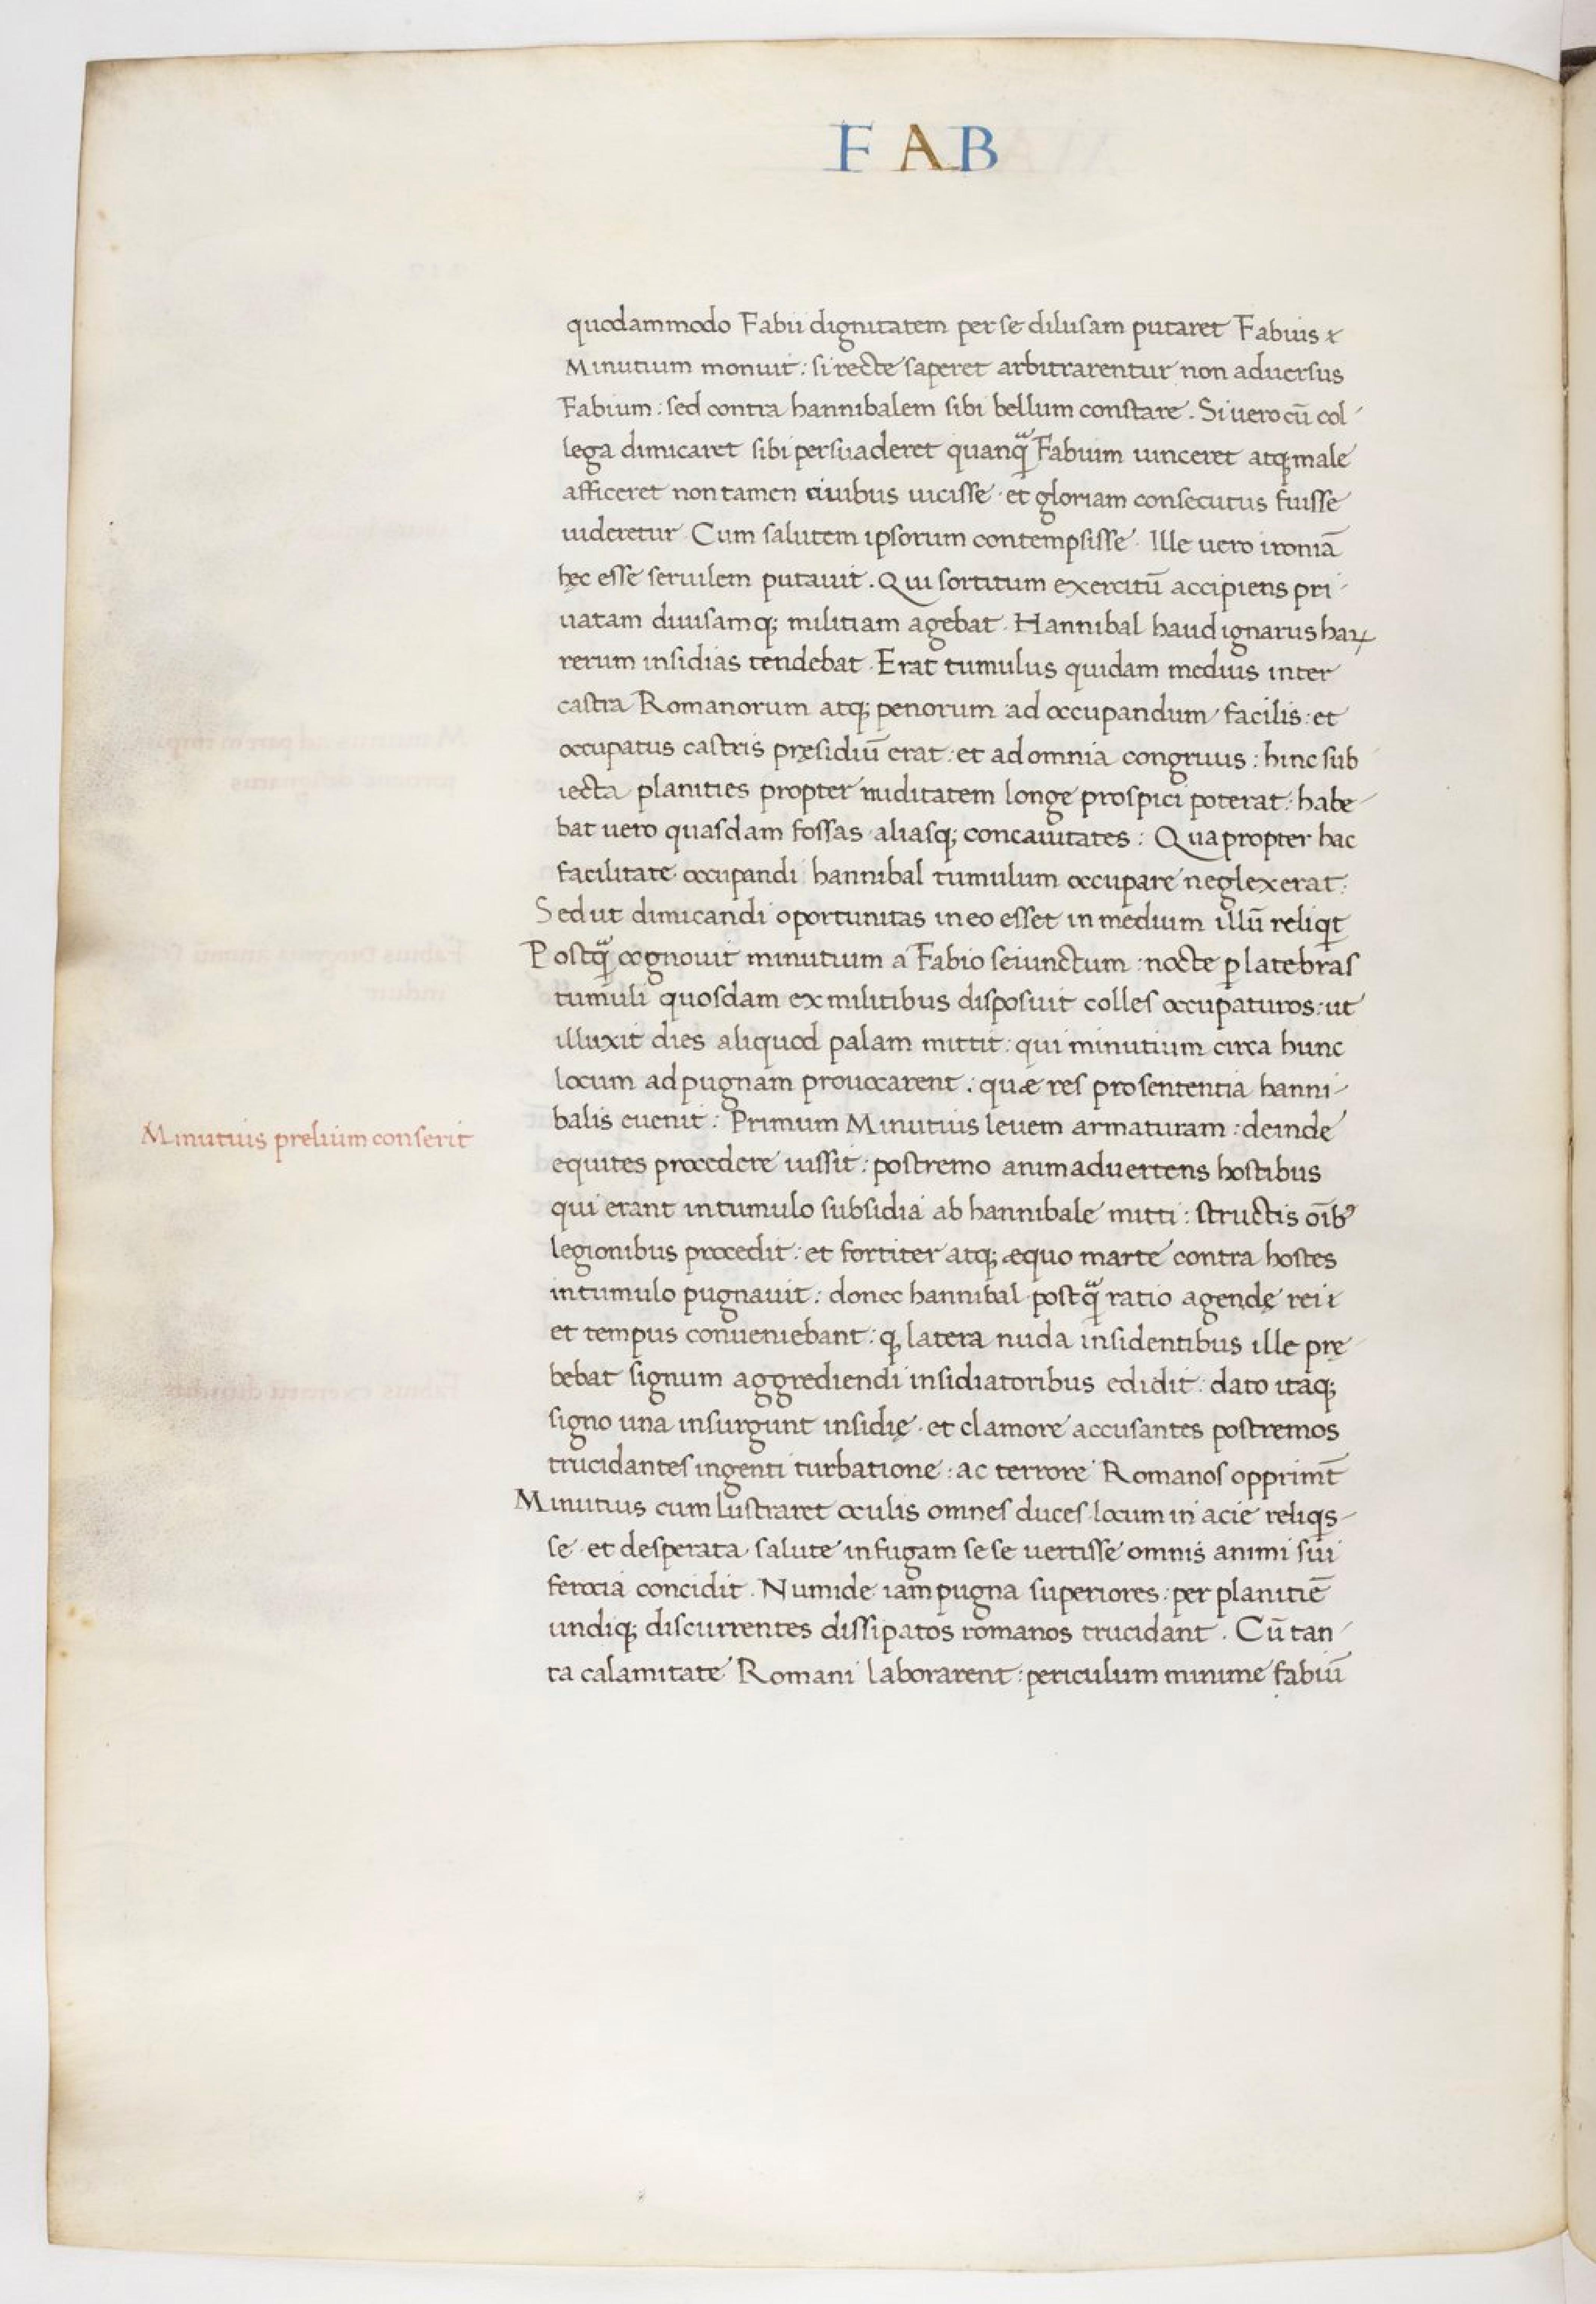 FAB
quodammodo Fabii dignitatem per se dilusam putaret Fabius
Minutium monuit: si recte saperet arbitrarentur non aduersus
Fabium: sed contra hannibalem sibi bellum constare. Si uero cū col
lega dimicaret sibi persuaderet quanq̃ Fabium uinceret atq; male
afficeret non tamen ciuibus uicisse et gloriam consecutus fuisse
uideretur Cum salutem ipsorum contempsisse. Ille uero ironiā
hęc esse seruilem putauit. Qui sortitum exercitū accipiens pri
uatam diuisamq; militiam agebat. Hannibal haud ignarus haꝝ
rerum insidias tendebat. Erat tumulus quidam medius inter
castra Romanorum atq; penorum ad occupandum facilis: et
occupatus castris pręsidiū erat: et ad omnia congruus: hinc sub
iecta planities propter nuditatem longe prospici poterat: habe
bat uero quasdam fossas aliasq; concauitates: Quapropter hac
facilitate occupandi hannibal tumulum occupare neglexerat:
Sed ut dimicandi oportunitas in eo esset in medium illū reliqt
Postq̃ cognouit minutium a Fabio seiunctum: nocte ꝑ latebras
tumuli quosdam ex militibus disposuit colles occupaturos: ut
illuxit dies aliquod palam mittit: qui minutium circa hunc
locum ad pugnam prouocarent: quæ res pro sententia hanni
Minutius prelium conserit
balis euenit: Primum Minutius leuem armaturam: deinde
equites procedere iussit: postremo animaduertens hostibus
qui erant in tumulo subsidia ab hannibale mitti: structis oīb᾽
legionibus procedit: et fortiter atq; æquo marte contra hostes
in tumulo pugnauit: donec hannibal postq̃ ratio agendę rei
et tempus conueniebant: q; latera nuda insidentibus ille prę
bebat signum aggrediendi insidiatoribus edidit: dato itaq;
signo una insurgunt insidię et clamore accusantes postremos
trucidantes ingenti turbatione: ac terrore Romanos opprimt̄
Minutius cum lustraret oculis omnes duces locum in acie reliqs
se et desperata salute in fugam sese uertisse omnis animi sui
ferocia concidit. Numide iam pugna superiores: per planitiē
undiq; discurrentes dissipatos romanos trucidant. Cū tan
ta calamitate Romani laborarent: periculum minime fabiū